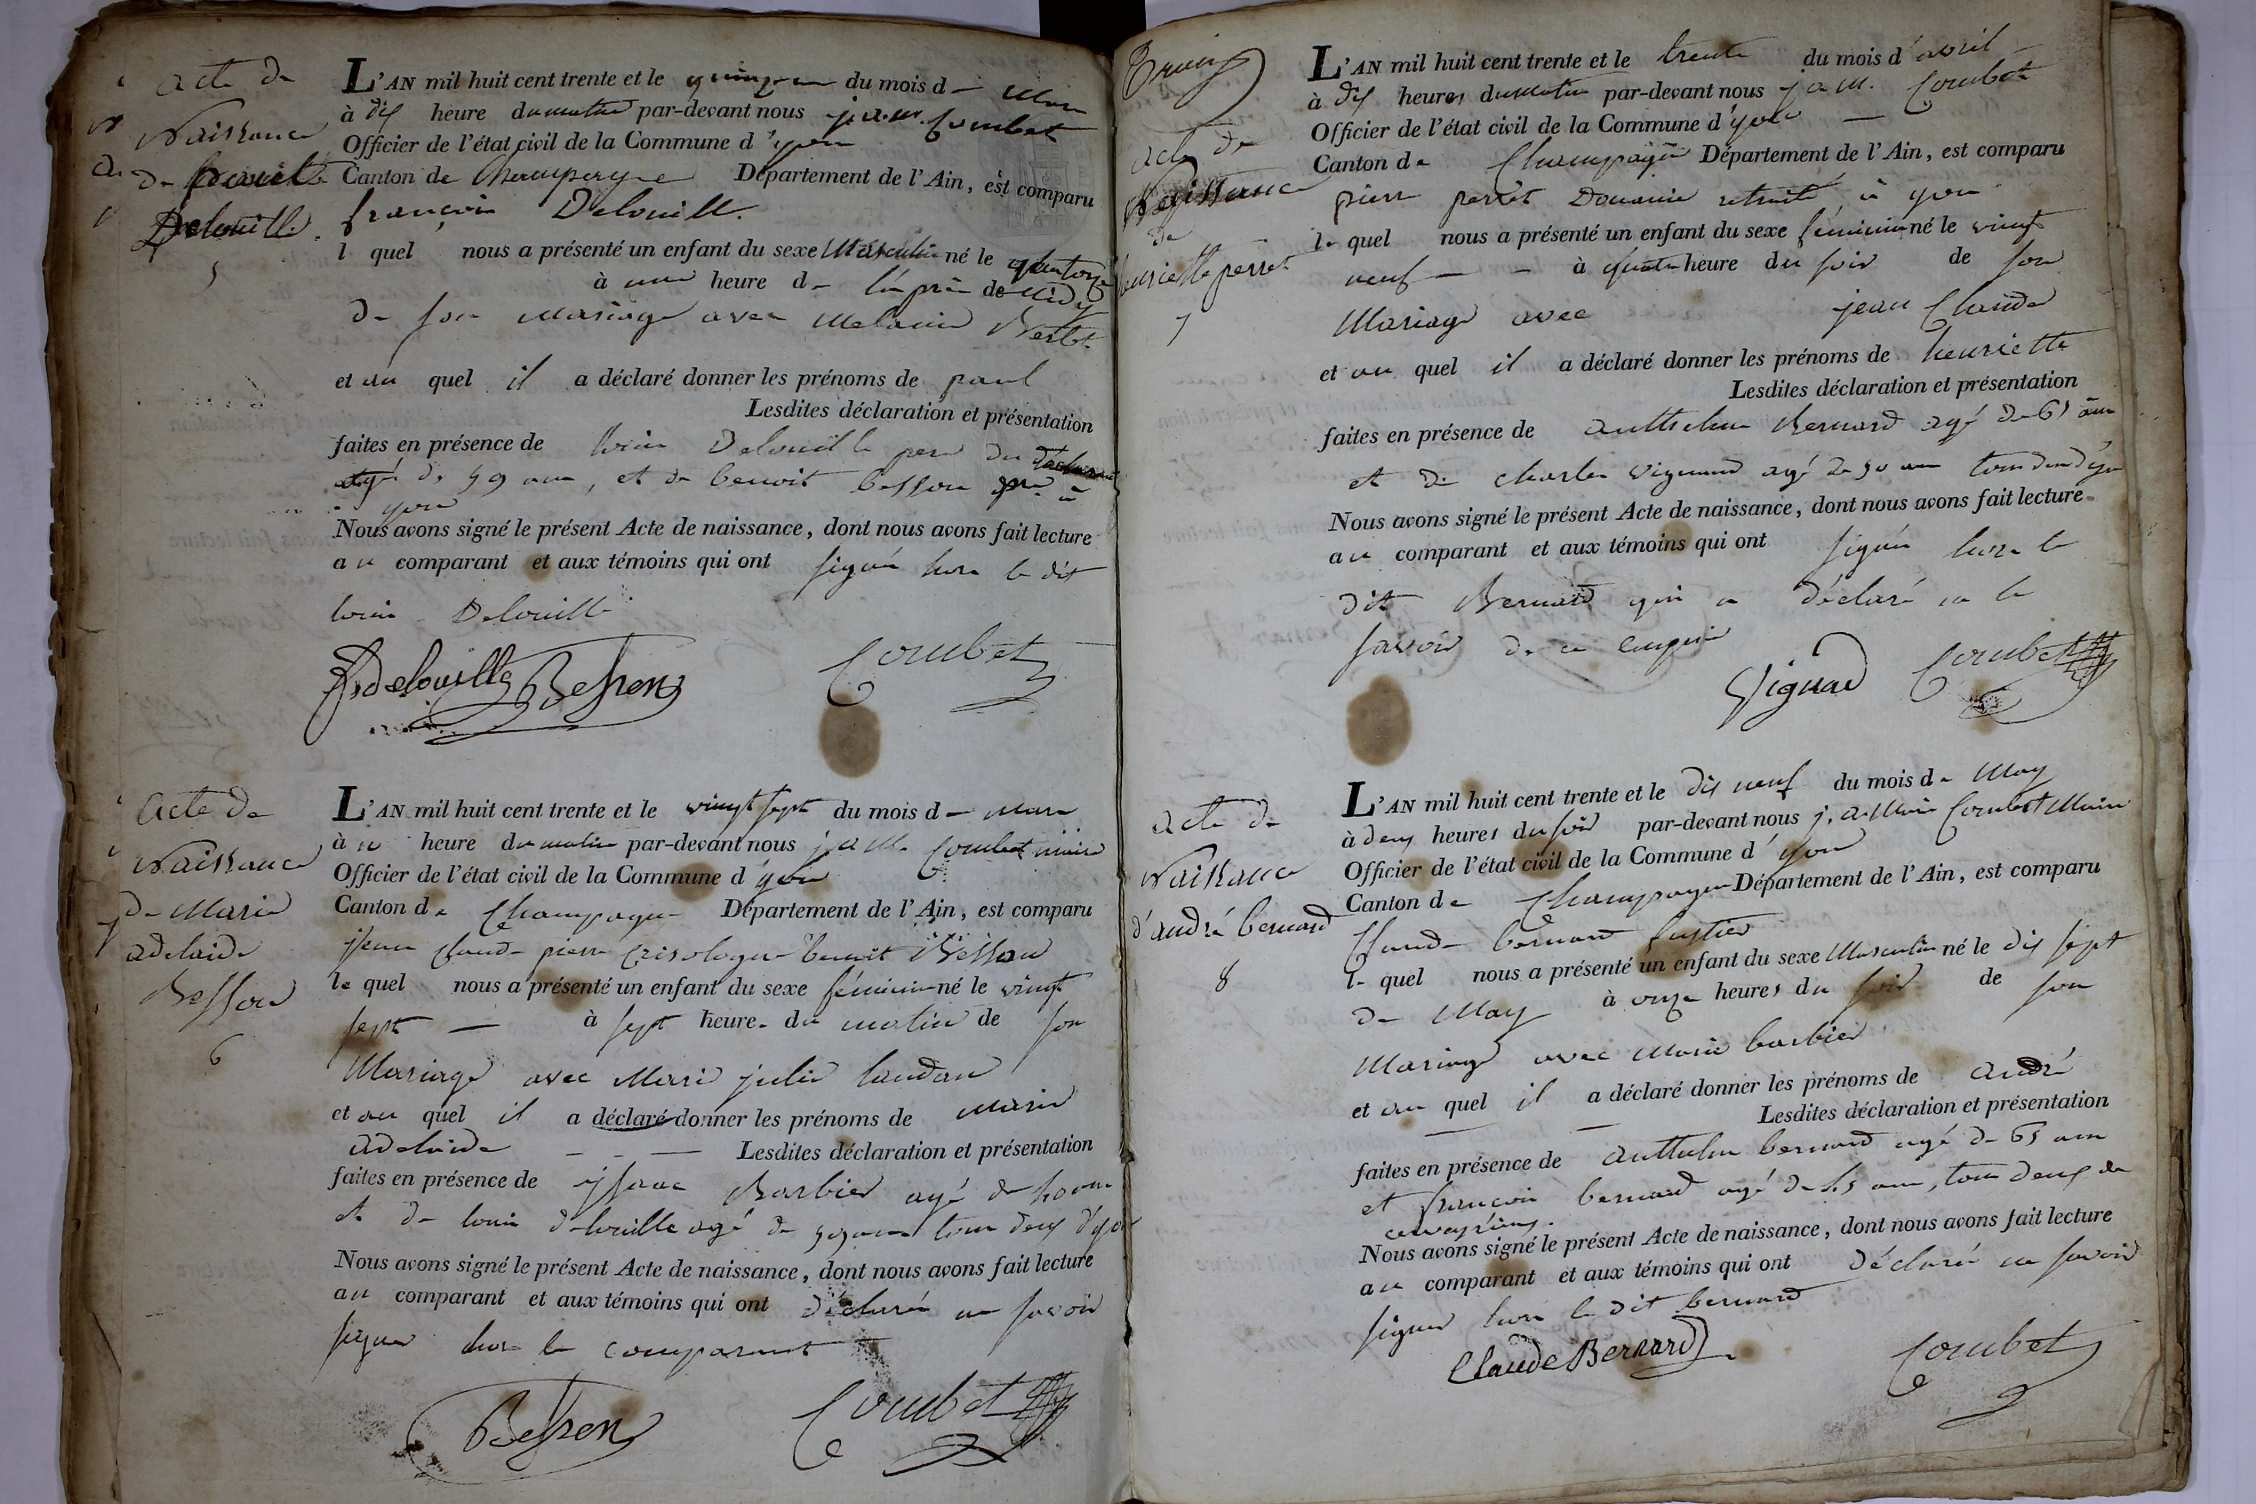 acte de
Naissance
de paul
Delouille
5
L'AN mil huit cent trente et le quinze du mois d mars
à dix heure du matin par-devant nous j. a. m. Combet
Officier de l'état civil de la Commune d'yon
Canton de Champagne Département de l'Ain, est comparu
françois Delouille.
l quel nous a présenté un enfant du sexe Masculin né le quatorze
à une heure d de
de son mariage avec Melanie Berlet
et au quel il a déclaré donner les prénoms de paul
Lesdites déclaration et présentation
faites en présence de louis Delouille pere du déclarant
agé de 59 ans, et de benoit besson à
yon
Nous avons signé le présent Acte de naissance, dont nous avons fait lecture
au comparant et aux témoins qui ont signé hors le dit
louis Delouille
fs delouille Besson Combet
acte de
Naissance
de Marie
adelaide
Besson
6
L'AN mil huit cent trente et le vingt sept du mois d mars
à heure du matin par-devant nous j. a. m. Combet maire
Officier de l'état civil de la Commune d'yon
Canton de Champagne Département de l'Ain, est comparu
jean Claude pierre crisologue benoit Besson
le quel nous a présenté un enfant du sexe féminin né le vingt
sept — à sept heure du matin de son
Mariage avec Marie julie landau
et au quel il a déclaré donner les prénoms de marie
adelaide — — — Lesdites déclaration et présentation
faites en présence de jsaac Barbier agé de
et de louis delouille agé de 59 ans tous deux d'yon
Nous avons signé le présent Acte de naissance, dont nous avons fait lecture
au comparant et aux témoins qui ont déclaré ne savoir
signer hors le comparant
Besson Combet
acte de
Naissance
de
henriette perret
7
L'AN mil huit cent trente et le trente du mois d'avril
à dix heures du matin par-devant nous j. a. m. Combet
Officier de l'état civil de la Commune d'yon —
Canton de Champagne Département de l'Ain, est comparu
pierre perret Douanier retraité à yon
le quel nous a présenté un enfant du sexe féminin né le vingt
neuf — — à quatre heure du soir de son
Mariage avec jean Claude
et au quel il a déclaré donner les prénoms de henriette
Lesdites déclaration et présentation
faites en présence de anthelme Bernard agé de 65 ans
et de charles vignand agé de 50 ans tous deux d'yon
Nous avons signé le présent Acte de naissance, dont nous avons fait lecture
au comparant et aux témoins qui ont signé hors le
dit Bernard qui a déclaré ne le
savoir de ce enquis
Vignad Combet
acte de
Naissance
d'andré bernard
8
L'AN mil huit cent trente et le dix neuf du mois de May
à deux heures du soir par-devant nous j. a. Marie Combet Maire
Officier de l'état civil de la Commune d'yon
Canton de Champagne Département de l'Ain, est comparu
Claude bernard
le quel nous a présenté un enfant du sexe Masculin né le dix sept
de May à onze heures du soir de son
Mariage avec marie barbier
et au quel il a déclaré donner les prénoms de andré
— — Lesdites déclaration et présentation
faites en présence de anthelme bernard agé de 65 ans
et françois bernard agé de ans, tous deux de
Nous avons signé le présent Acte de naissance, dont nous avons fait lecture
au comparant et aux témoins qui ont déclaré ne savoir
signer hors le dit bernard
Claude Bernard Combet